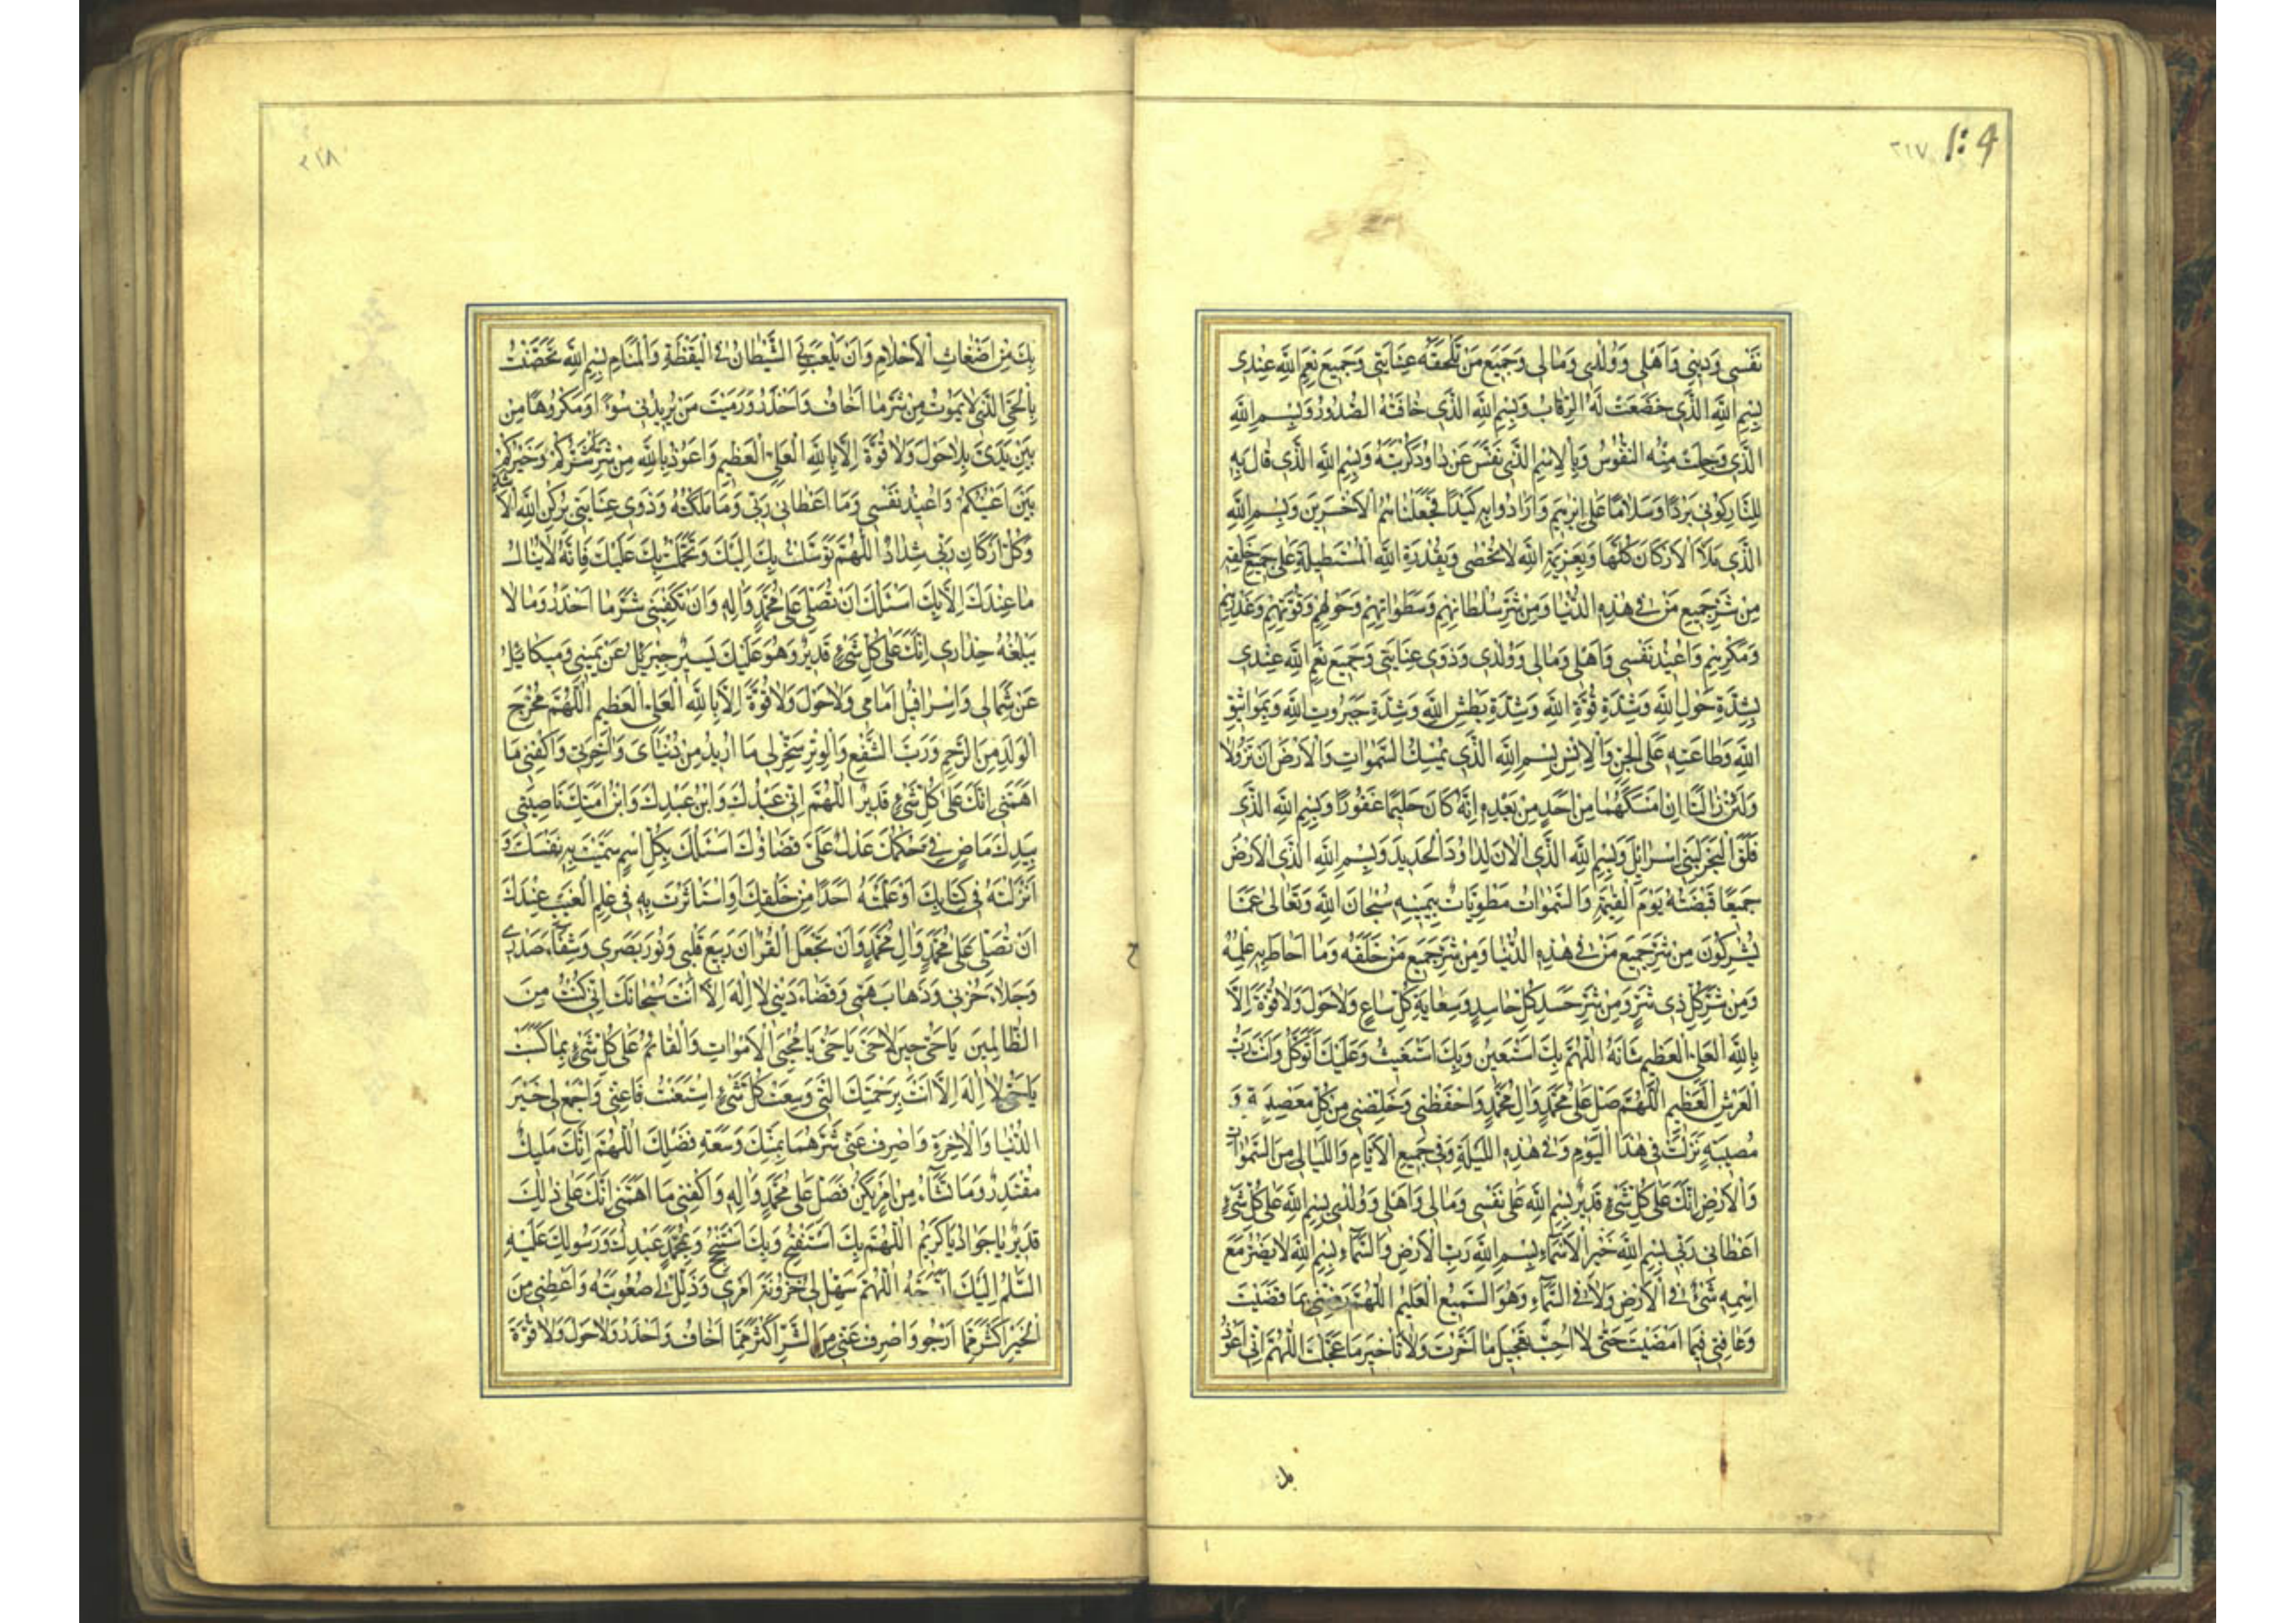 ٢١٧
نَفْسى وَدينى وَاَهْلى وَوُلْدى وَمالى وَجَميعَ مَنْ تَلْحَقُهُ عِنايَتى وَجَميعَ نِعَمِ اللّهِ عِنْدى
بِسْمِ اللّهِ الَّذى خَضَعَتْ لَهُ الرِّقابُ وَبِسْمِ اللّهِ الَّذى خافَتْهُ الصُّدُورُ وَبِسْمِ اللّهِ
الَّذى وَجِلَتْ مِنْهُ النُّفُوسُ وَبِالْاِسْمِ الَّذى نَفَّسَ عَنْ داوُدَ كُرْبَتَهُ وَبِسْمِ اللّهِ الَّذى قالَ بِهِ
لِلنّارِ كُونى بَرْدًا وَسَلامًا عَلى اِبْرهيمَ وَاَرادُوا بِهِ كَيْدًا فَجَعَلْناهُمُ الْاَخْسَرينَ وَبِسْمِ اللّهِ
الَّذى مَلَأَ الْاَرْكانَ كُلَّها وَبِعَزيمَةِ اللّهِ لا تُحْصى وَبِقُدْرَةِ اللّهِ الْمُسْتَطيلَةِ عَلى جَميعِ خَلْقِهِ
مِنْ شَرِّ جَميعِ مَنْ فى هذِهِ الدُّنْيا وَمِنْ شَرِّ سُلْطانِهِمْ وَسَطَواتِهِمْ وَحَوْلِهِمْ وَقُوَّتِهِمْ وَغَدْرِهِمْ
وَمَكْرِهِمْ وَاُعيذُ نَفْسى وَاَهْلى وَمالى وَوُلْدى وَذَوى عِنايَتى وَجَميعَ نِعَمِ اللّهِ عِنْدى
بِشِدَّةِ حَوْلِ اللّهِ وَشِدَّةِ قُوَّةِ اللّهِ وَشِدَّةِ بَطْشِ اللّهِ وَشِدَّةِ جَبَرُوتِ اللّهِ وَبِمَواثيقِ
اللّهِ وَطاعَتِهِ عَلَى الْجِنِّ وَالْاِنْسِ بِسْمِ اللّهِ الَّذى يُمْسِكُ السَّمواتِ وَالْاَرْضَ اَنْ تَزُولا
وَلَئِنْ زالَتا اِنْ اَمْسَكَهُما مِنْ اَحَدٍ مِنْ بَعْدِهِ اِنَّهُ كانَ حَليمًا غَفُورًا وَبِسْمِ اللّهِ الَّذى
فَلَقَ الْبَحْرَ لِبَنى اِسْرائيلَ وَبِسْمِ اللّهِ الَّذى اَلانَ لِداوُدَ الْحَديدَ وَبِسْمِ اللّهِ الَّذى الْاَرْضُ
جَميعًا قَبْضَتُهُ يَوْمَ الْقِيمَةِ وَالسَّمواتُ مَطْوِيّاتٌ بِيَمينِهِ سُبْحانَ اللّهِ وَتَعالى عَمّا
يُشْرِكُونَ مِنْ شَرِّ جَميعِ مَنْ فى هذِهِ الدُّنْيا وَمِنْ شَرِّ جَميعِ مَنْ خَلَقَهُ وَما اَحاطَ بِهِ عِلْمُهُ
وَمِنْ شَرِّ كُلِّ ذى شَرٍّ وَمِنْ شَرِّ حَسَدِ كُلِّ حاسِدٍ وَسِعايَةِ كُلِّ ساعٍ وَلا حَوْلَ وَلا قُوَّةَ اِلّا
بِاللّهِ الْعَلِىِّ الْعَظيمِ شَأْنُهُ اَللّهُمَّ بِكَ اَسْتَعينُ وَبِكَ اَسْتَغيثُ وَعَلَيْكَ اَتَوَكَّلُ وَاَنْتَ رَبُّ
الْعَرْشِ الْعَظيمِ اَللّهُمَّ صَلِّ عَلى مُحَمَّدٍ وَالِ مُحَمَّدٍ وَاحْفَظْنى وَخَلِّصْنى مِنْ كُلِّ مَعْصِيَةٍ وَ
مُصيبَةٍ نَزَلَتْ فى هذَا الْيَوْمِ وَفى هذِهِ اللَّيْلَةِ وَفى جَميعِ الْاَيّامِ وَاللَّيالى مِنَ السَّمواتِ
وَالْاَرْضِ اِنَّكَ عَلى كُلِّ شَىْءٍ قَديرٌ بِسْمِ اللّهِ عَلى نَفْسى وَمالى وَاَهْلى وَوُلْدى بِسْمِ اللّهِ عَلى كُلِّ شَىْءٍ
اَعْطانى رَبّى بِسْمِ اللّهِ خَيْرِ الْاَسْماءِ بِسْمِ اللّهِ رَبِّ الْاَرْضِ وَالسَّماءِ بِسْمِ اللّهِ لا يَضُرُّ مَعَ
اسْمِهِ شَىْءٌ فِى الْاَرْضِ وَلا فِى السَّماءِ وَهُوَ السَّميعُ الْعَليمُ اَللّهُمَّ رَضِّنى بِما قَضَيْتَ
وَعافِنى فيما اَمْضَيْتَ حَتّى لا اُحِبَّ تَعْجيلَ ما اَخَّرْتَ وَلا تَأْخيرَ ما عَجَّلْتَ اَللّهُمَّ اِنّى اَعُوذُ
بك
٢١٨
بِكَ مِنْ اَضْغاثِ الْاَحْلامِ وَاَنْ يَلْعَبَ بِىَ الشَّيْطانُ فِى الْيَقْظَةِ وَالْمَنامِ بِسْمِ اللّهِ تَحَصَّنْتُ
بِالْحَىِّ الَّذى لا يَمُوتُ مِنْ شَرِّ ما اَخافُ وَاَحْذَرُ وَرَمَيْتُ مَنْ يُريدُ بى سُوءًا اَوْ مَكْرُوهًا مِنْ
بَيْنِ يَدَىَّ بِلا حَوْلَ وَلا قُوَّةَ اِلّا بِاللّهِ الْعَلِىِّ الْعَظيمِ وَاَعُوذُ بِاللّهِ مِنْ شَرِّكُمْ شَرُّكُمْ وَخَيْرُكُمْ
بَيْنَ اَعْيُنِكُمْ وَاُعيذُ نَفْسى وَما اَعْطانى رَبّى وَما مَلَكَتْهُ وَذَوى عِنايَتى بِرُكْنِ اللّهِ الْاَشَدِّ
وَكُلُّ اَرْكانِ رَبّى شِدادٌ اَللّهُمَّ تَوَسَّلْتُ بِكَ اِلَيْكَ وَتَحَمَّلْتُ بِكَ عَلَيْكَ فَاِنَّهُ لا يُنالُ
ما عِنْدَكَ اِلّا بِكَ اَسْئَلُكَ اَنْ تُصَلِّىَ عَلى مُحَمَّدٍ وَالِهِ وَاَنْ تَكْفِيَنى شَرَّ ما اَحْذَرُ وَما لا
يَبْلُغُهُ حِذارى اِنَّكَ عَلى كُلِّ شَىْءٍ قَديرٌ وَهُوَ عَلَيْكَ يَسيرٌ جِبْرَئيلُ عَنْ يَمينى وَميكائيلُ
عَنْ شِمالى وَاِسْرافيلُ اَمامى وَلا حَوْلَ وَلا قُوَّةَ اِلّا بِاللّهِ الْعَلِىِّ الْعَظيمِ اَللّهُمَّ مُخْرِجَ
الْوَلَدِ مِنَ الرَّحِمِ وَرَبَّ الشَّفْعِ وَالْوِتْرِ سَخِّرْ لى ما اُريدُ مِنْ دُنْياىَ وَاخِرَتى وَاكْفِنى ما
اَهَمَّنى اِنَّكَ عَلى كُلِّ شَىْءٍ قَديرٌ اَللّهُمَّ اِنّى عَبْدُكَ وَابْنُ عَبْدِكَ وَابْنُ اَمَتِكَ ناصِيَتى
بِيَدِكَ ماضٍ فِىَّ حُكْمُكَ عَدْلٌ عَلَىَّ قَضاؤُكَ اَسْئَلُكَ بِكُلِّ اسْمٍ سَمَّيْتَ بِهِ نَفْسَكَ وَ
اَنْزَلْتَهُ فى كِتابِكَ اَوْ عَلَّمْتَهُ اَحَدًا مِنْ خَلْقِكَ اَوِ اسْتَأْثَرْتَ بِهِ فى عِلْمِ الْغَيْبِ عِنْدَكَ
اَنْ تُصَلِّىَ عَلى مُحَمَّدٍ وَالِ مُحَمَّدٍ وَاَنْ تَجْعَلَ الْقُرْانَ رَبيعَ قَلْبى وَنُورَ بَصَرى وَشِفاءَ صَدْرى
وَجَلاءَ حُزْنى وَذَهابَ هَمّى وَقَضاءَ دَيْنى لا اِلهَ اِلّا اَنْتَ سُبْحانَكَ اِنّى كُنْتُ مِنَ
الظّالِمينَ يا حَىُّ حينَ لا حَىَّ يا حَىُّ يا مُحْيِىَ الْاَمْواتِ وَالْقائِمُ عَلى كُلِّ شَىْءٍ بِما كَسَبَتْ
يا حَىُّ لا اِلهَ اِلّا اَنْتَ بِرَحْمَتِكَ الَّتى وَسِعَتْ كُلَّ شَىْءٍ اسْتَعَنْتُ فَاَعِنّى وَاجْمَعْ لى خَيْرَ
الدُّنْيا وَالْاخِرَةِ وَاصْرِفْ عَنّى شَرَّهُما بِمَنِّكَ وَسَعَةِ فَضْلِكَ اَللّهُمَّ اِنَّكَ مَليكٌ
مُقْتَدِرٌ وَما تَشاءُ مِنْ اَمْرٍ يَكُنْ فَصَلِّ عَلى مُحَمَّدٍ وَالِهِ وَاكْفِنى ما اَهَمَّنى اِنَّكَ عَلى ذلِكَ
قَديرٌ يا جَوادُ يا كَريمُ اَللّهُمَّ بِكَ اَسْتَفْتِحُ وَبِكَ اَسْتَنْجِحُ وَبِمُحَمَّدٍ عَبْدِكَ وَرَسُولِكَ عَلَيْهِ
السَّلمُ اِلَيْكَ اَتَوَجَّهُ اَللّهُمَّ سَهِّلْ لى حُزُونَةَ اَمْرى وَذَلِّلْ لى صُعُوبَتَهُ وَاَعْطِنى مِنَ
الْخَيْرِ اَكْثَرَ مِمّا اَرْجُو وَاصْرِفْ عَنّى مِنَ الشَّرِّ اَكْثَرَ مِمّا اَخافُ وَاَحْذَرُ وَلا حَوْلَ وَلا قُوَّةَ